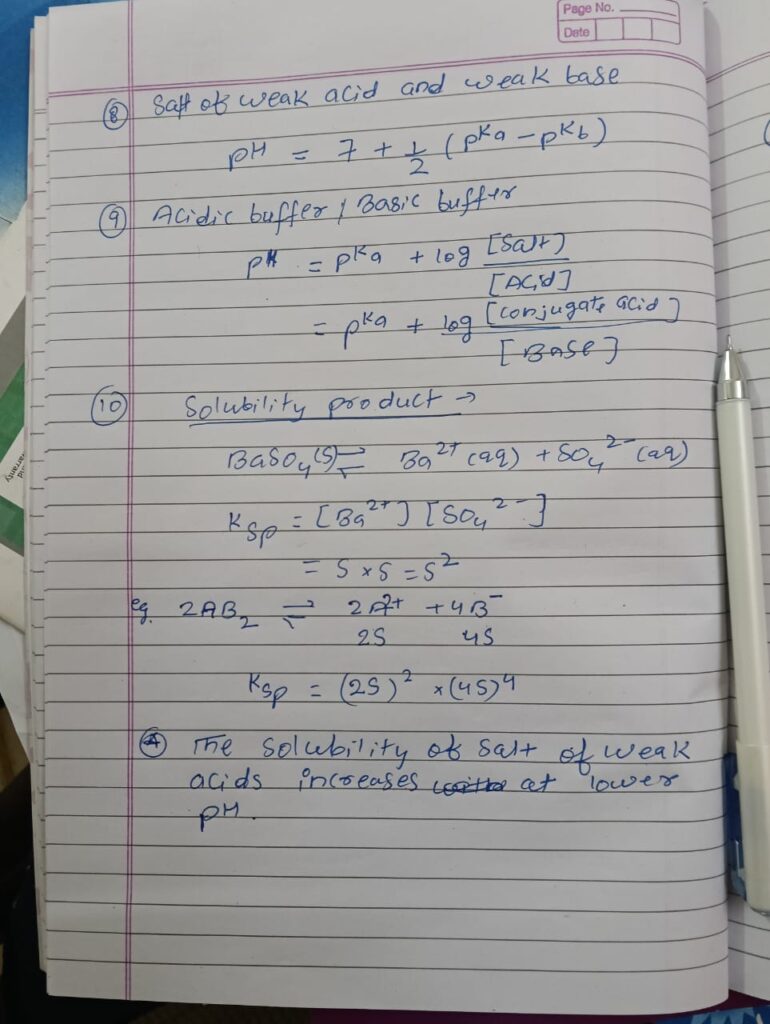 Page No.
Date
⑧ Salt of weak acid and weak base
pH = 7 + 1/2 (pKa - pKb)
⑨ Acidic buffer / Basic buffer
pH = pKa + log [Salt] / [Acid]
= pKa + log [conjugate acid] / [Base]
⑩ Solubility product →
BaSO₄(s) ⇌ Ba²⁺ (aq) + SO₄²⁻ (aq)
Ksp = [Ba²⁺] [SO₄²⁻]
= S × S = S²
eg. 2AB₂ ⇌ 2A²⁺ + 4B⁻
2S 4S
Ksp = (2S)² × (4S)⁴
The solubility of salt of weak
acids increases at lower
pH.
warranty